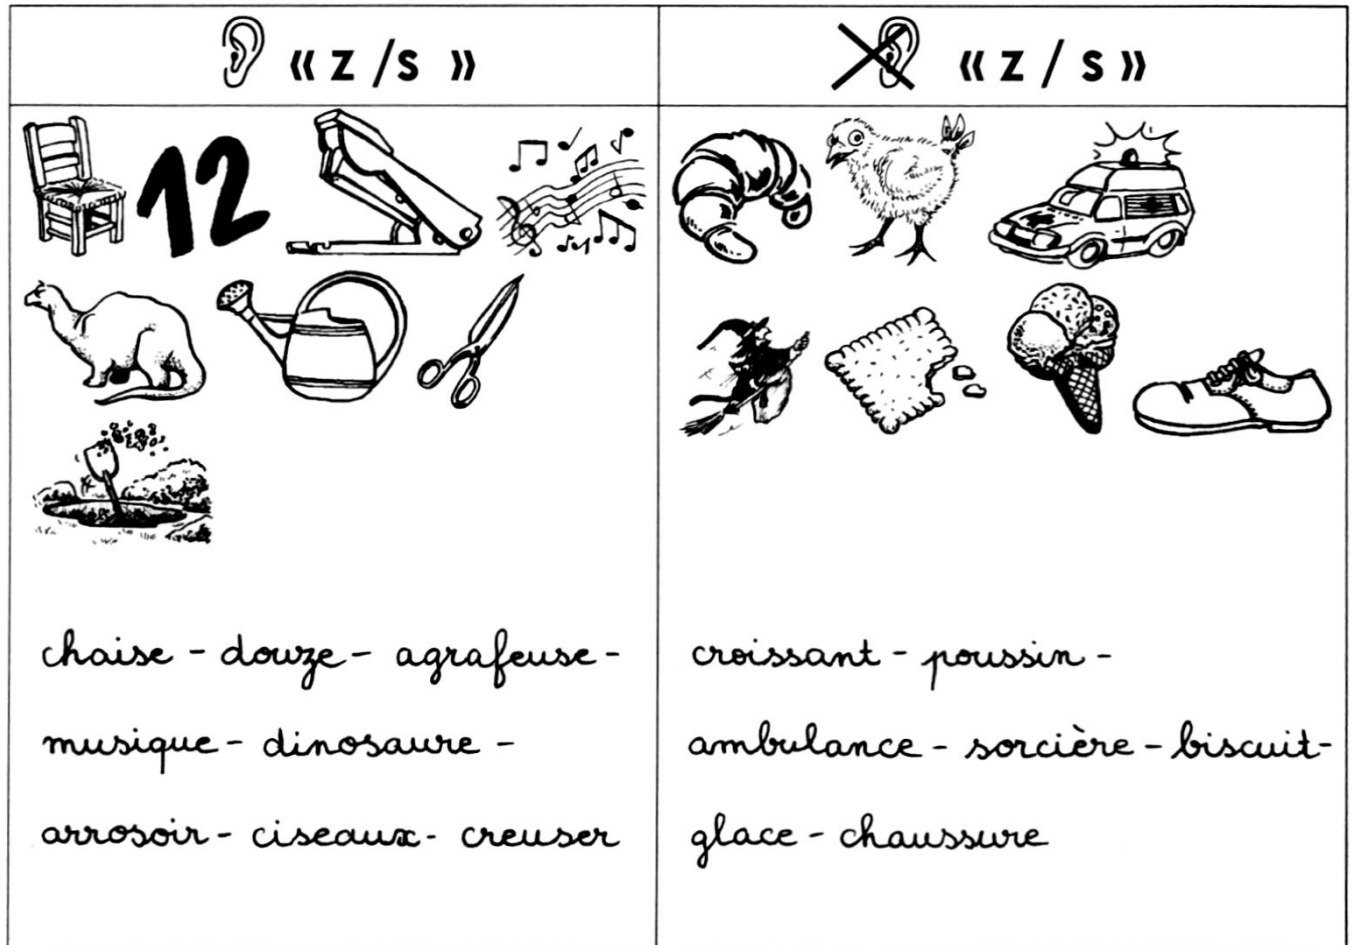 « z /s »
« z / s »
12
chaise - douze - agrafeuse -
musique - dinosaure -
arrosoir - ciseaux - creuser
croissant - poussin -
ambulance - sorcière - biscuit -
glace - chaussure